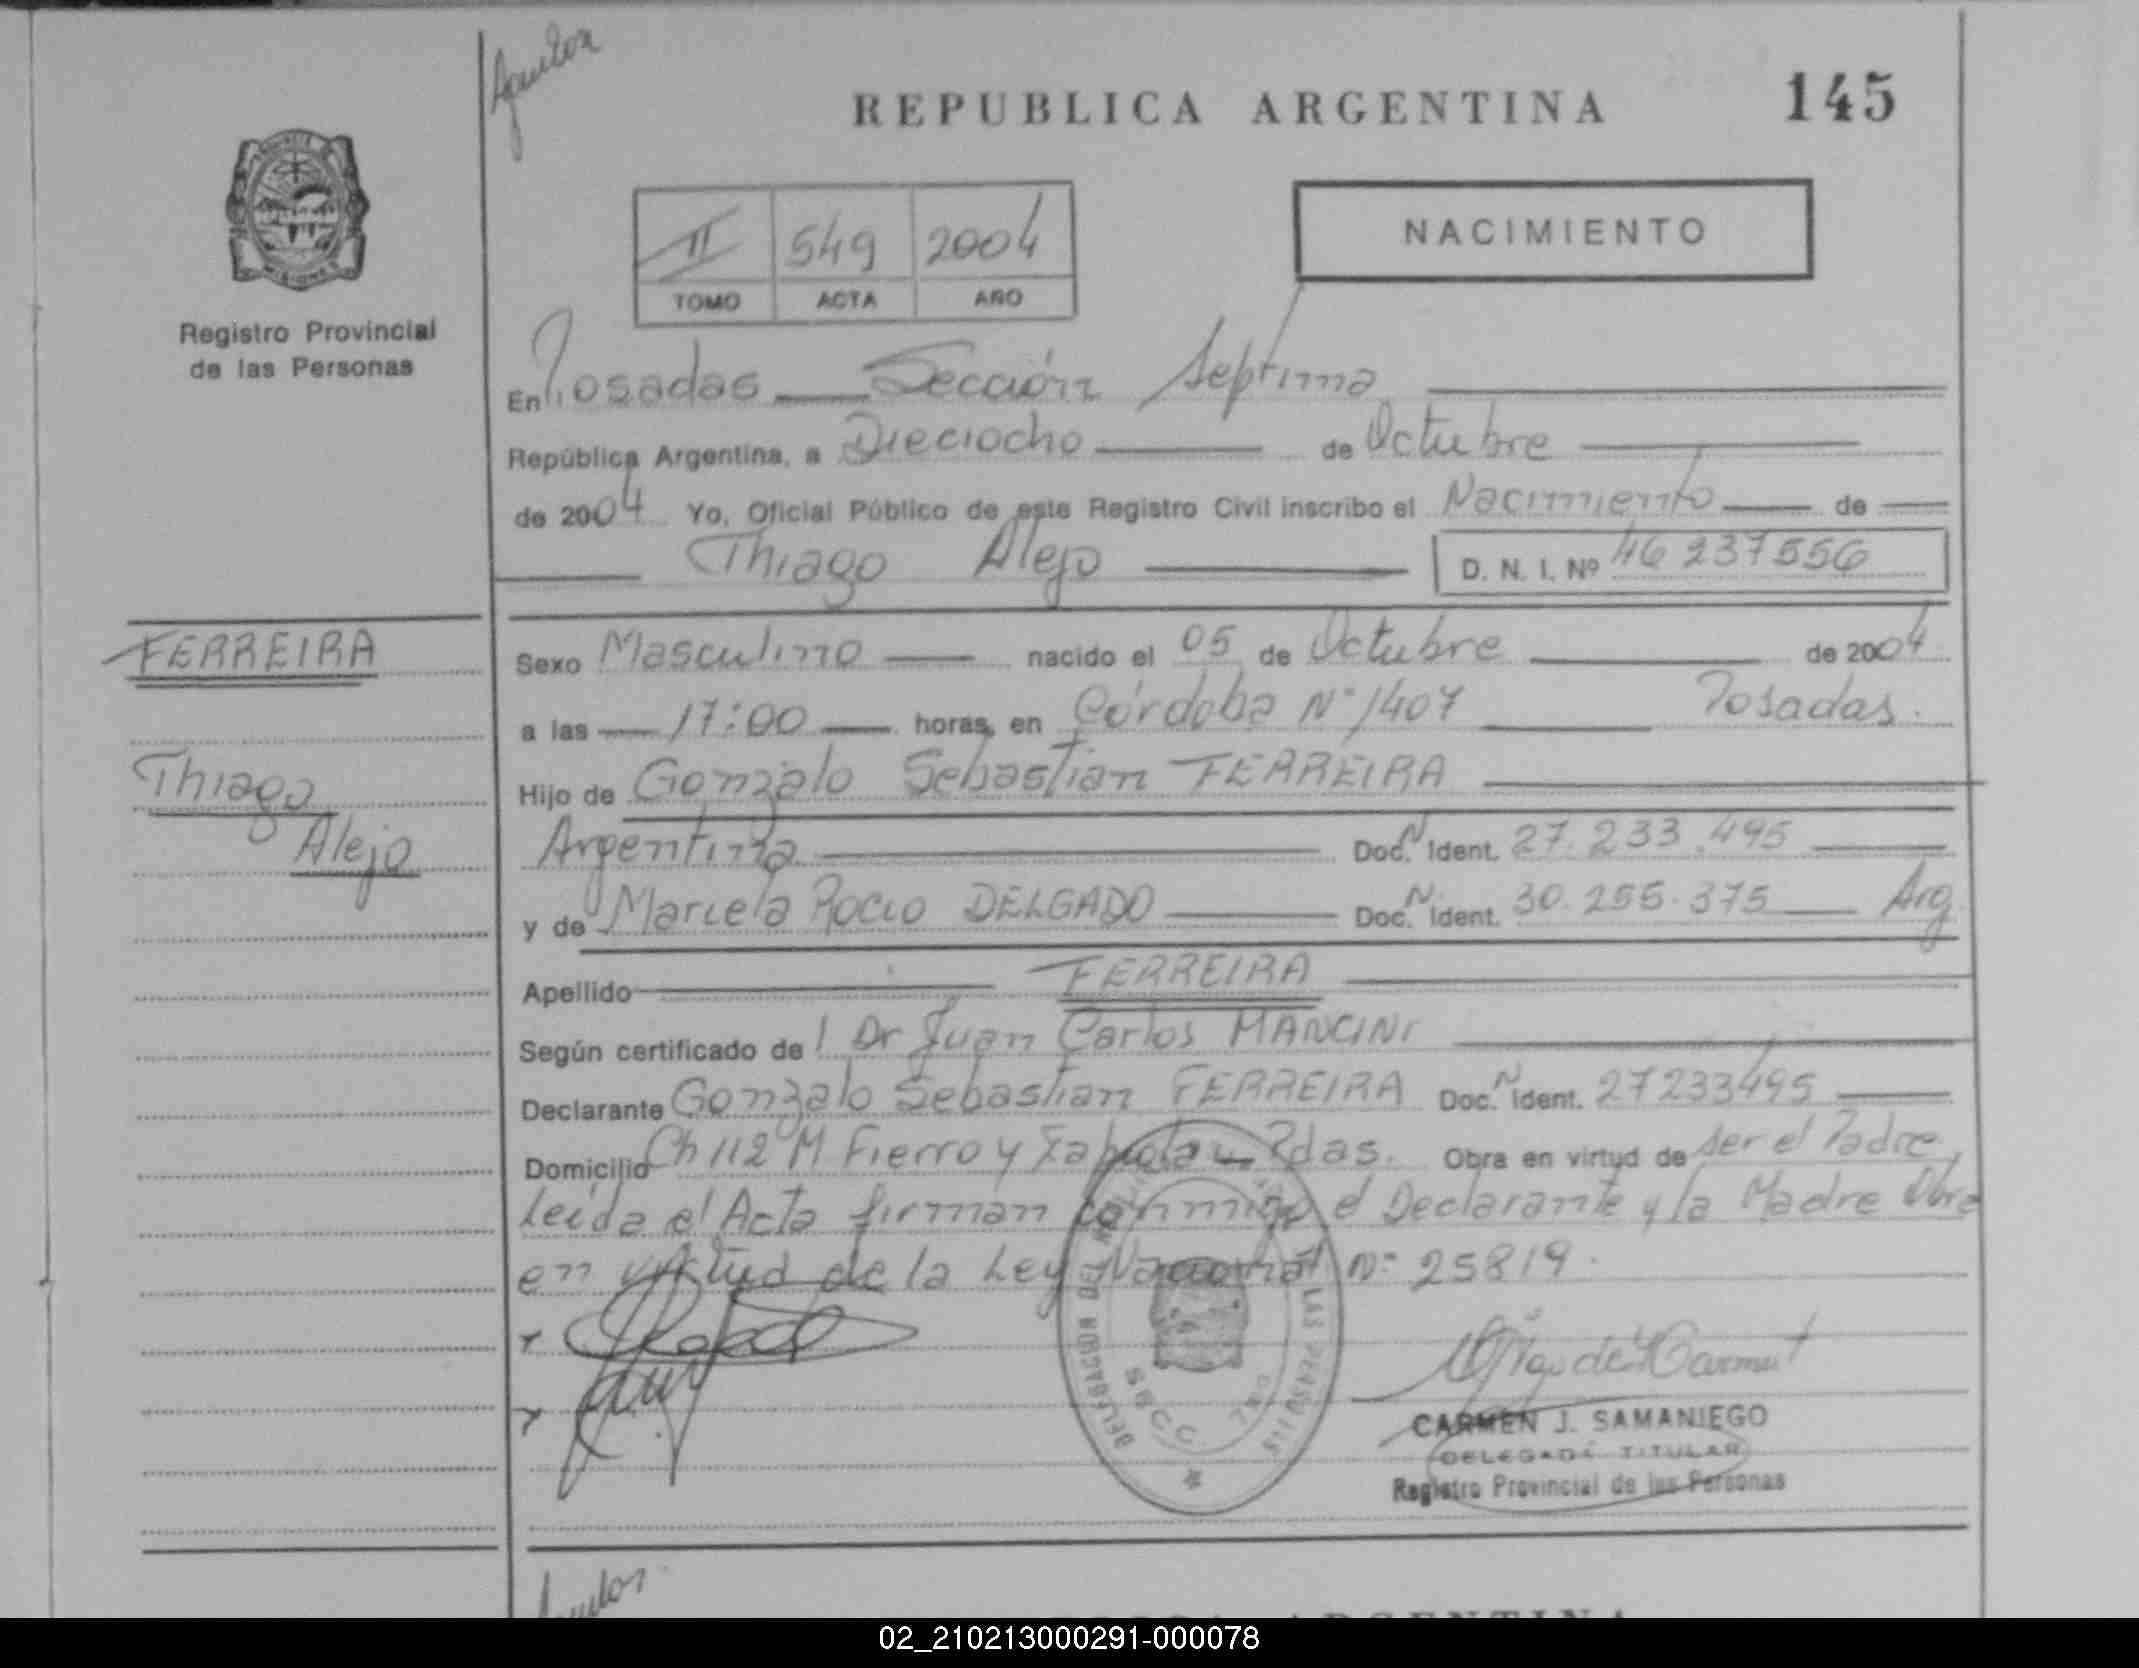 REPUBLICA ARGENTINA
145
NACIMIENTO
II 549 2004
TOMO ACTA AÑO
Registro Provincial
de las Personas
En Posadas Sección Septima
República Argentina, a Dieciocho de Octubre
de 2004 Yo, Oficial Público de este Registro Civil inscribo el Nacimiento de
Thiago Alejo D. N. I. Nº 46 237556
FERREIRA
Thiago
Alejo
Sexo Masculino nacido el 05 de Octubre de 2004
a las 17:00 horas, en Córdoba Nº 1407 Posadas.
Hijo de Gonzalo Sebastian FERREIRA
Argentina Doc. N Ident. 27.233.495
y de Marcela Rocio DELGADO Doc. N Ident. 30.255.375 Arg
Apellido FERREIRA
Según certificado de l Dr Juan Carlos MANCINI
Declarante Gonzalo Sebastian FERREIRA Doc. N Ident. 27233495
Domicilio Ch 112 M Fierro y Pdas. Obra en virtud de ser el Padre
leída el Acta firman conmigo el Declarante y la Madre Obra
en virtud de la Ley Nacional Nº 25819.
CARMEN J. SAMANIEGO
DELEGADA TITULAR
Registro Provincial de las Personas
02_210213000291-000078